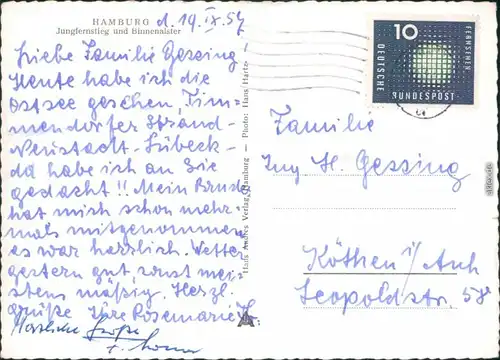 HAMBURG
Jungfernstieg und Binnenalster
d. 19.IX.57
Liebe Familie Gessing!
Heute habe ich die
Ostsee gesehen, Tim-
mendorfer Strand-
Neustadt-Lübeck-
da habe ich an Sie
gedacht!! Mein Bruder
hat mich schon mehr-
mals mitgenommen,
es war herrlich. Wetter
gestern gut, sonst mei-
stens mäßig. Herzl.
Grüße Ihre Rosemarie H.
Herzliche Grüße
Hans Andres Verlag, Hamburg - Photo: Hans Hartz
10
FERNSEHEN
DEUTSCHE
BUNDESPOST
Familie
Ing. H. Gessing
Köthen i/Anh
Leopoldstr. 58